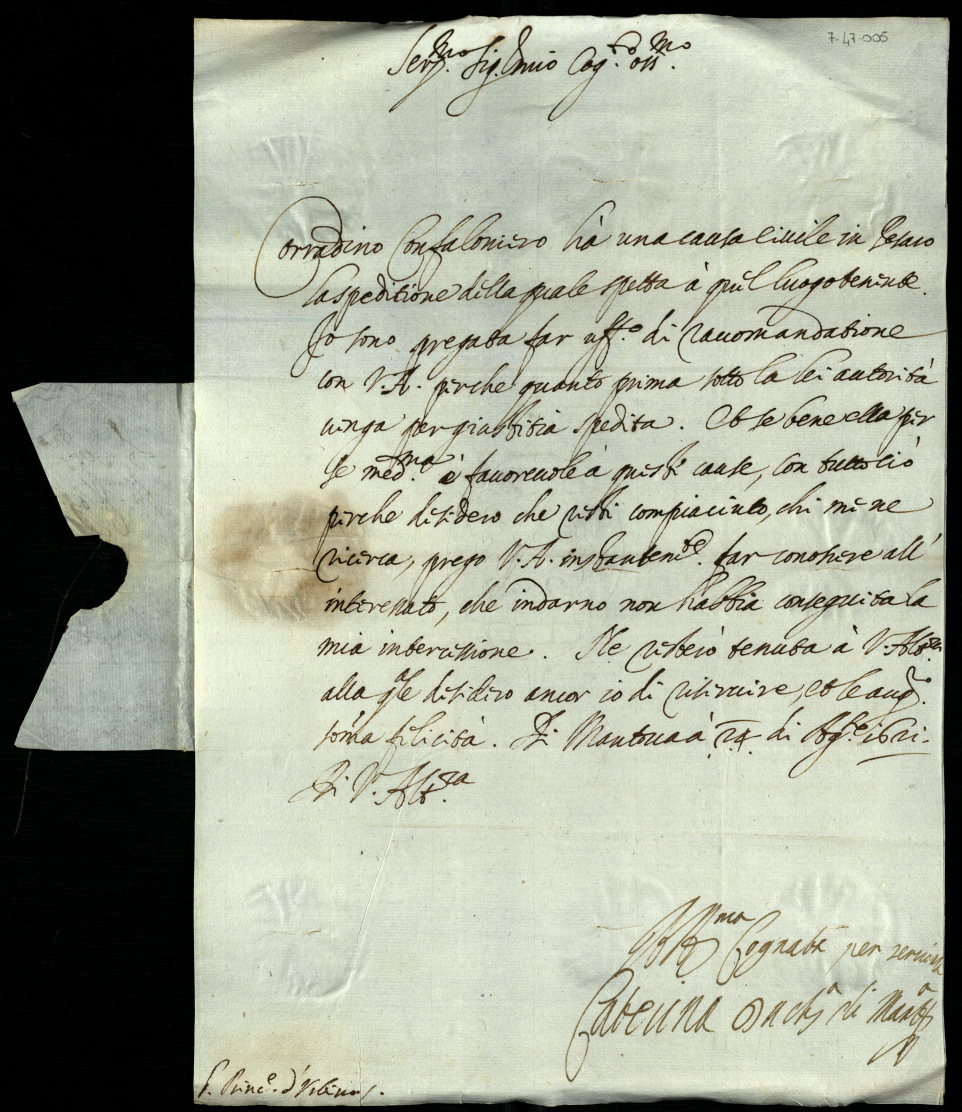 7-47-006
Ser.mo Sig.r mio Cog.to oss.mo
Corradino Confaloniero hà una causa ciuile in Pesaro
la speditione della quale spetta à quel luogotenente.
Io sono pregata far uff.o di raccomandatione
con V.A. perche quanto prima sotto la lei autorità
uenga per giustitia spedita. Et se bene ella per
se med.ma è fauoreuole à queste cause, con tutto ciò
perche desidero che resti compiaciuto, chi me ne
ricerca, prego V.A. instantem.te far conoscere all'
interessato, che indarno non habbia conseguita la
mia intercessione. Ne resterò tenuta à V. Alt.za
alla q.le desidero ancor io di seruire, et le aug.o
som̃a felicità. Di Mantoua à 24 di Ag.to 1621.
Di V. Alt.za
Aff.ma Cognata per seruirla
Caterina Duch.a di Mant.a
S. Princ.e d'Vrbino.